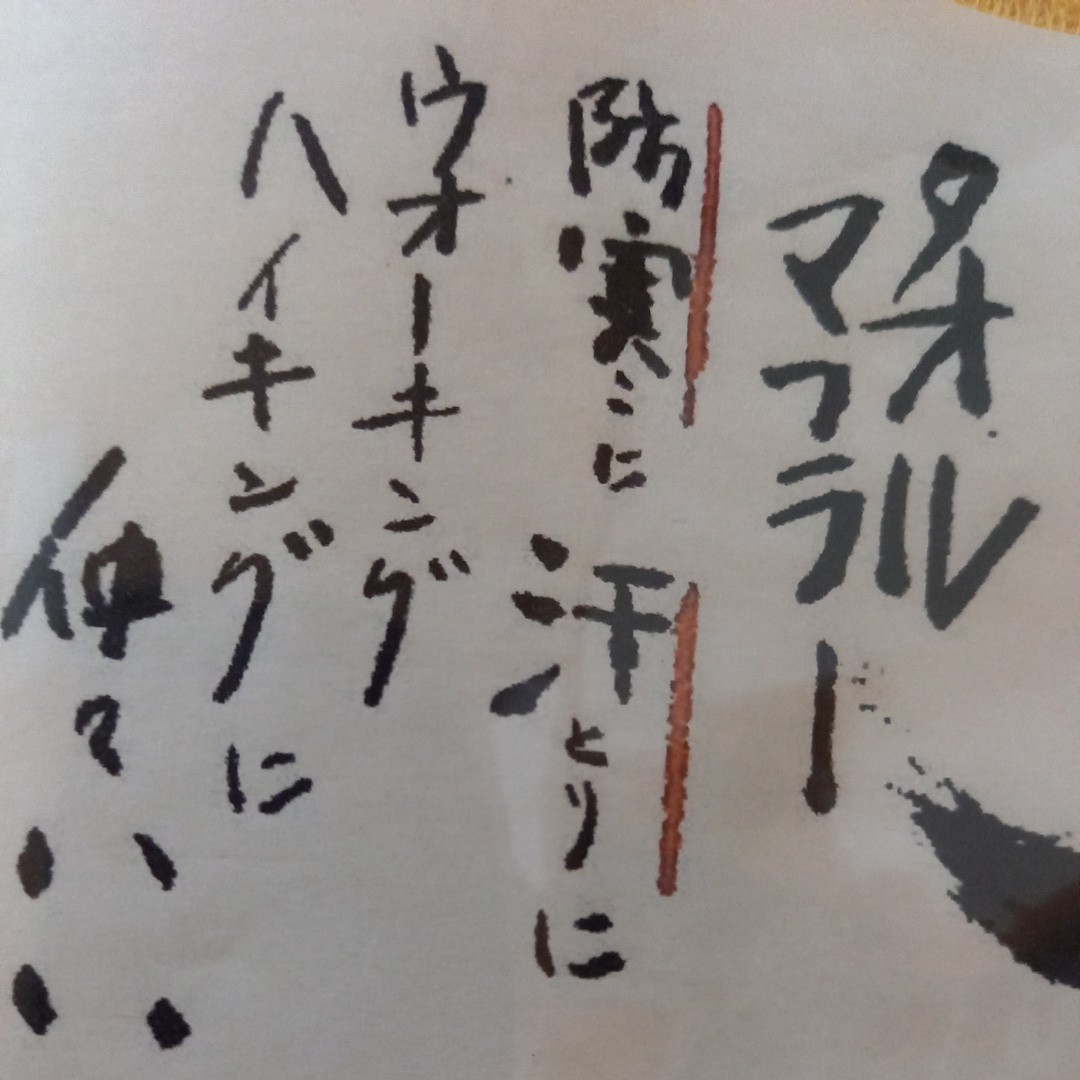 タオル
マフラー
防寒に 汗とりに
ウオーキング
ハイキングに
仲々いい